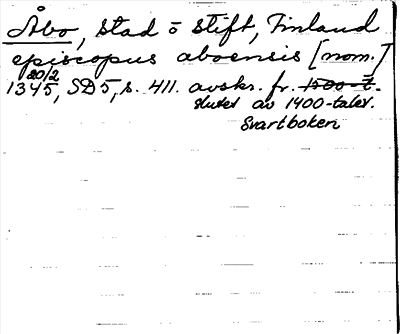 Åbo, stad o stift, Finland
episcopus aboensis [nom.]
20/2
1345, SD 5, s. 411. avskr. fr. 1500-t.
slutet av 1400-talet.
Svartboken